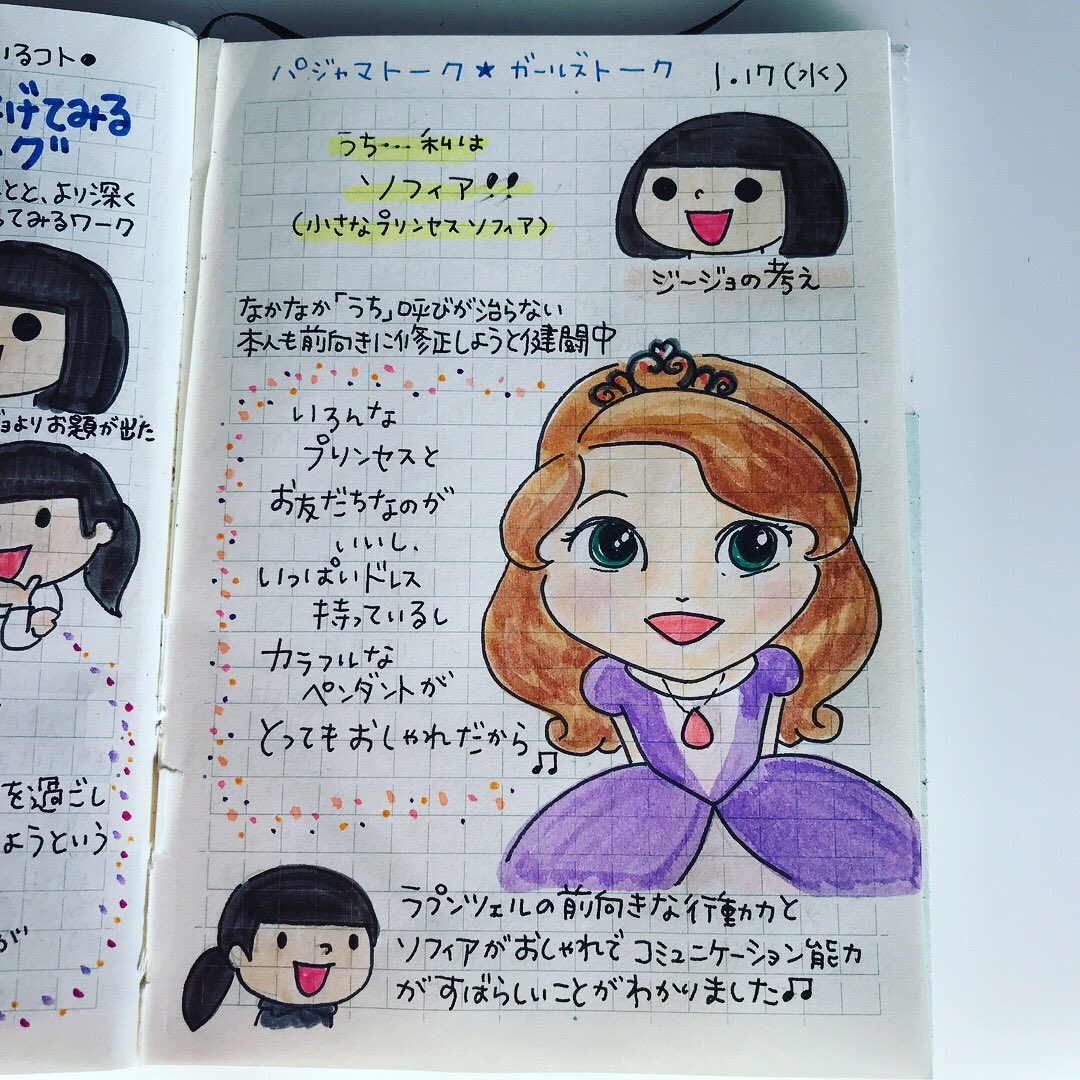 いるコト●
げてみる
グ
とと、より深く
てみるワーク
ジョよりお題が出た
を過ごし
ようという
が
パジャマトーク★ガールズトーク 1.17(水)
うち… 私は
ソフィア!!
(小さなプリンセスソフィア)
ジージョの考え
なかなか「うち」呼びが治らない
本人も前向きに修正しようと健闘中
いろんな
プリンセスと
お友だちなのが
いいし、
いっぱいドレス
持っているし
カラフルな
ペンダントが
とってもおしゃれだから♫
ラプンツェルの前向きな行動力と
ソフィアがおしゃれでコミュニケーション能力
がすばらしいことがわかりました♫